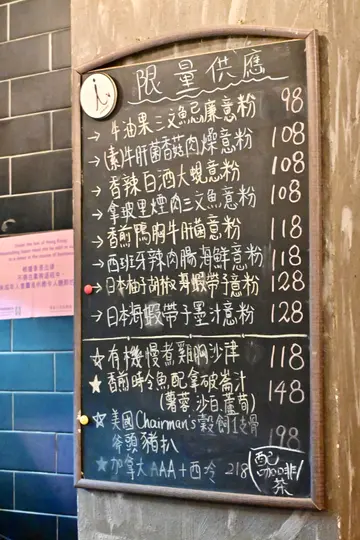 限量供應
→ 牛油果三文魚忌廉意粉 98
→ (素)牛肝菌香菇肉燥意粉 108
→ 香辣白酒大蜆意粉 108
→ 拿玻里煙肉三文魚意粉 108
→ 香煎鴨胸牛肝菌意粉 118
→ 西班牙辣肉腸海鮮意粉 118
→ 日本柚子胡椒海蝦帶子意粉 128
→ 日本海蝦帶子墨汁意粉 128
☆ 有機慢煮雞胸沙津 118
★ 香煎時令魚配拿破崙汁 148
(薯蓉.沙白.蘆荀)
★ 美國Chairman's穀飼1支骨
斧頭豬扒 198
★ 加拿大AAA+西冷 218
配咖啡/茶